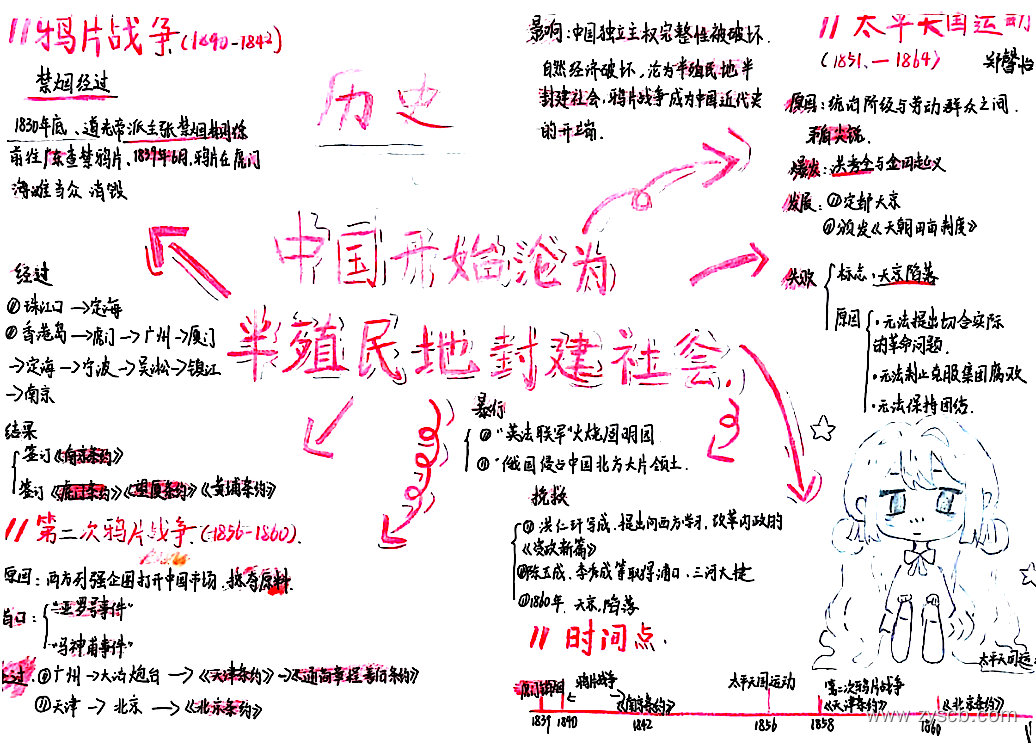 鸦片战争(1840-1842)
禁烟经过
1830年底、道光帝派主张禁烟
前往广东查禁鸦片、1839年6月,鸦片在虎门
海滩当众 消毁
历史
影响:中国独立主权完整性被破坏.
自然经济破坏,沦为半殖民地半
封建社会,鸦片战争成为中国近代史
的开端.
太平天国运动
(1851.—1864)
原因:统治阶级与劳动群众之间.
矛盾尖锐.
爆发:洪秀全与金田起义
发展:①定都天京
②颁发《天朝田亩制度》
失败
标志:天京陷落
原因
·无法提出切合实际
的革命问题.
·无法制止克服集团腐败
·无法保持团结.
中国开始沦为
半殖民地封建社会.
经过
①珠江口→定海
②香港岛→虎门→广州→厦门
→定海→宁波→吴淞→镇江
→南京
结果
签订《南京条约》
签订《虎门条约》《望厦条约》《黄埔条约》
暴行
①"英法联军"火烧圆明园
②"俄国侵占中国北方大片领土.
挽救
①洪仁玕写成,提出向西方学习,改革内政的
《资政新篇》
②陈玉成、李秀成等取得浦口、三河大捷
③1860年.天京陷落
第二次鸦片战争(1856-1860).
原因:西方列强企图打开中国市场、掠夺原料
"亚罗号事件"
"马神甫事件"
①广州→大沽炮台→《天津条约》→《通商章程善后条约》
②天津→北京→《北京条约》
时间点.
鸦片战争
《南京条约》
太平天国运动
第二次鸦片战争
《天津条约》
《北京条约》
太平天国运
1839 1840 1842 1856 1858 1860
www.zyscb.com